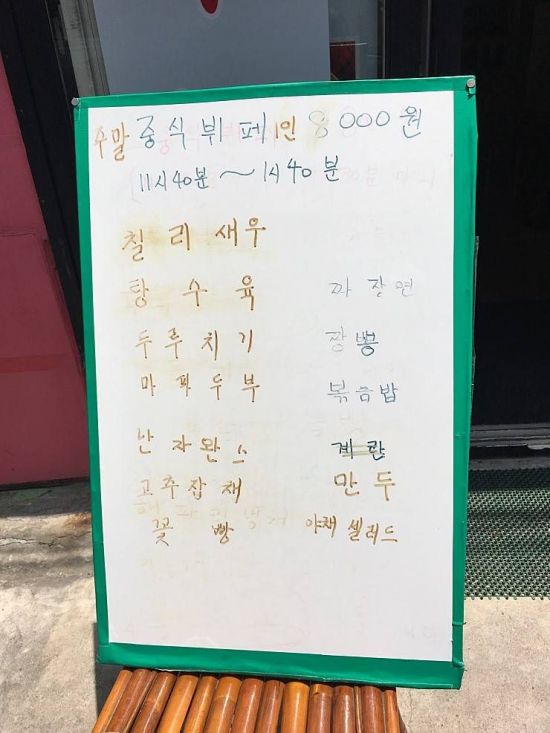 주말 중식뷔페 1인 8000원
11시40분 ~ 1시40분
칠리새우
탕수육
두루치기
마파두부
난자완스
고추잡채
꽃빵
까장면
짬뽕
볶음밥
계란
만두
야채 셀러드